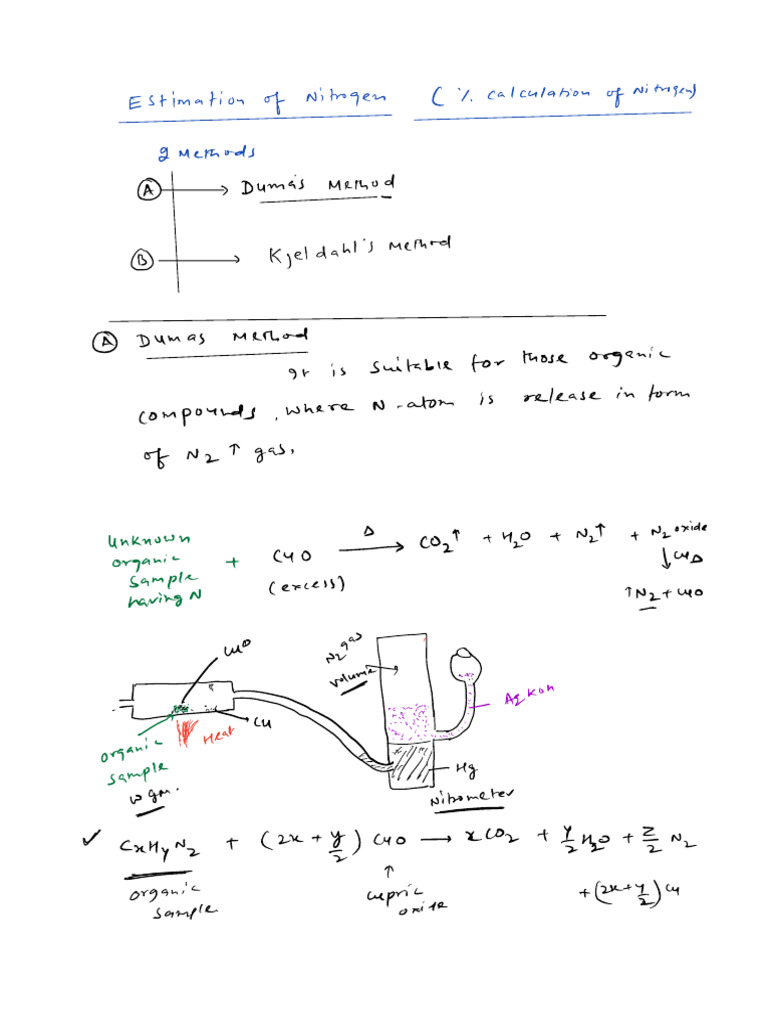 Estimation of Nitrogen ( % calculation of Nitrogen)
2 Methods
(A) → Duma's Method
(B) → Kjeldahl's Method
(A) Dumas Method
It is suitable for those organic
compounds, where N-atom is release in form
of N2 ↑ gas,
Unknown
organic
sample
having N
+ CuO
(excess)
Δ
→ CO2↑ + H2O + N2↑ + N2 oxide
↓ Cu Δ
↑N2 + CuO
CuO
N2 gas
volume
Aq KOH
Cu
Heat
organic
sample
w gm.
Hg
Nitrometer
✓ CxHyNz + (2x + y/2) CuO → xCO2 + y/2 H2O + z/2 N2
+ (2x+y/2) Cu
organic
sample
↑
cupric
oxide